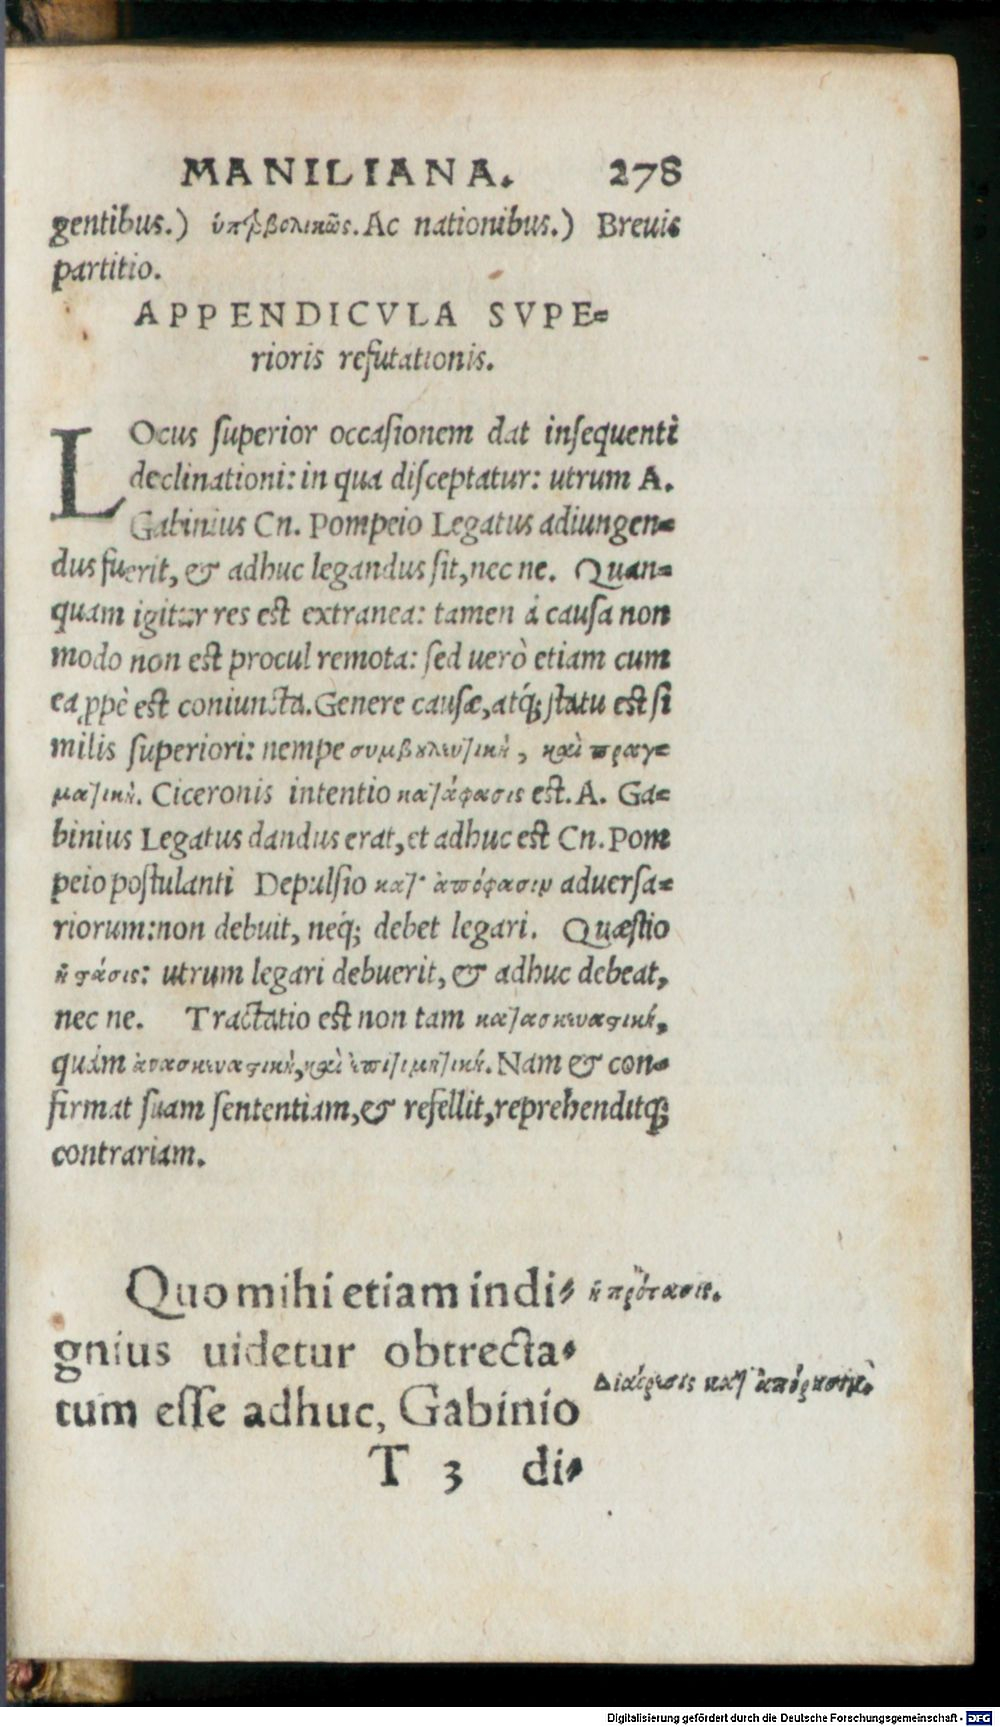 MANILIANA. 278
gentibus.) ὑπερβολικῶς. Ac nationibus.) Breuis
partitio.
APPENDICVLA SVPE=
rioris refutationis.
LOcus ſuperior occaſionem dat inſequenti
declinationi: in qua diſceptatur: utrum A.
Gabinius Cn. Pompeio Legatus adiungen=
dus fuerit, & adhuc legandus ſit, nec ne. Quan=
quam igitur res est extranea: tamen à cauſa non
modo non est procul remota: ſed uerò etiam cum
ea ꝓpè est coniuncta. Genere cauſæ, atq́; ſtatu est ſi
milis ſuperiori: nempe συμβουλευτικὴ, καὶ πραγ=
ματικὴ. Ciceronis intentio κατάφασις est. A. Ga=
binius Legatus dandus erat, et adhuc est Cn. Pom
peio poſtulanti Depulſio κατ' ἀπόφασιν aduerſa=
riorum: non debuit, neq́; debet legari. Quæſtio
ἢ στάσις: utrum legari debuerit, & adhuc debeat,
nec ne. Tractatio est non tam κατασκευαστική,
quàm ἀνασκευαστικὴ, καὶ ἐπιτιμητική. Nam & con=
firmat ſuam ſententiam, & refellit, reprehenditq́;
contrariam.
Quo mihi etiam indi=
ἡ πρότασις.
gnius uidetur obtrecta=
tum eſſe adhuc, Gabinio
Διαίρεσις κατ'
T 3 di=
Digitalisierung gefördert durch die Deutsche Forschungsgemeinschaft - DFG